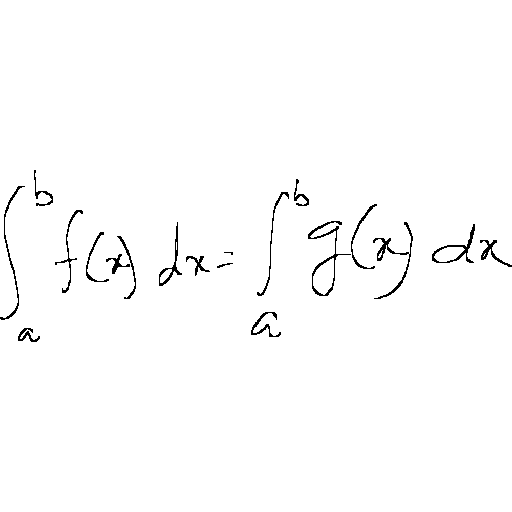 ∫_a^b f(x) dx = ∫_a^b g(x) dx